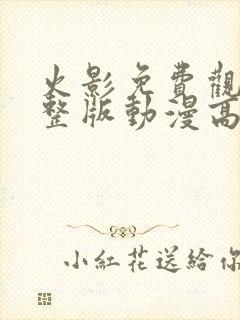 火影免費觀
整版動漫高
小紅花送給你